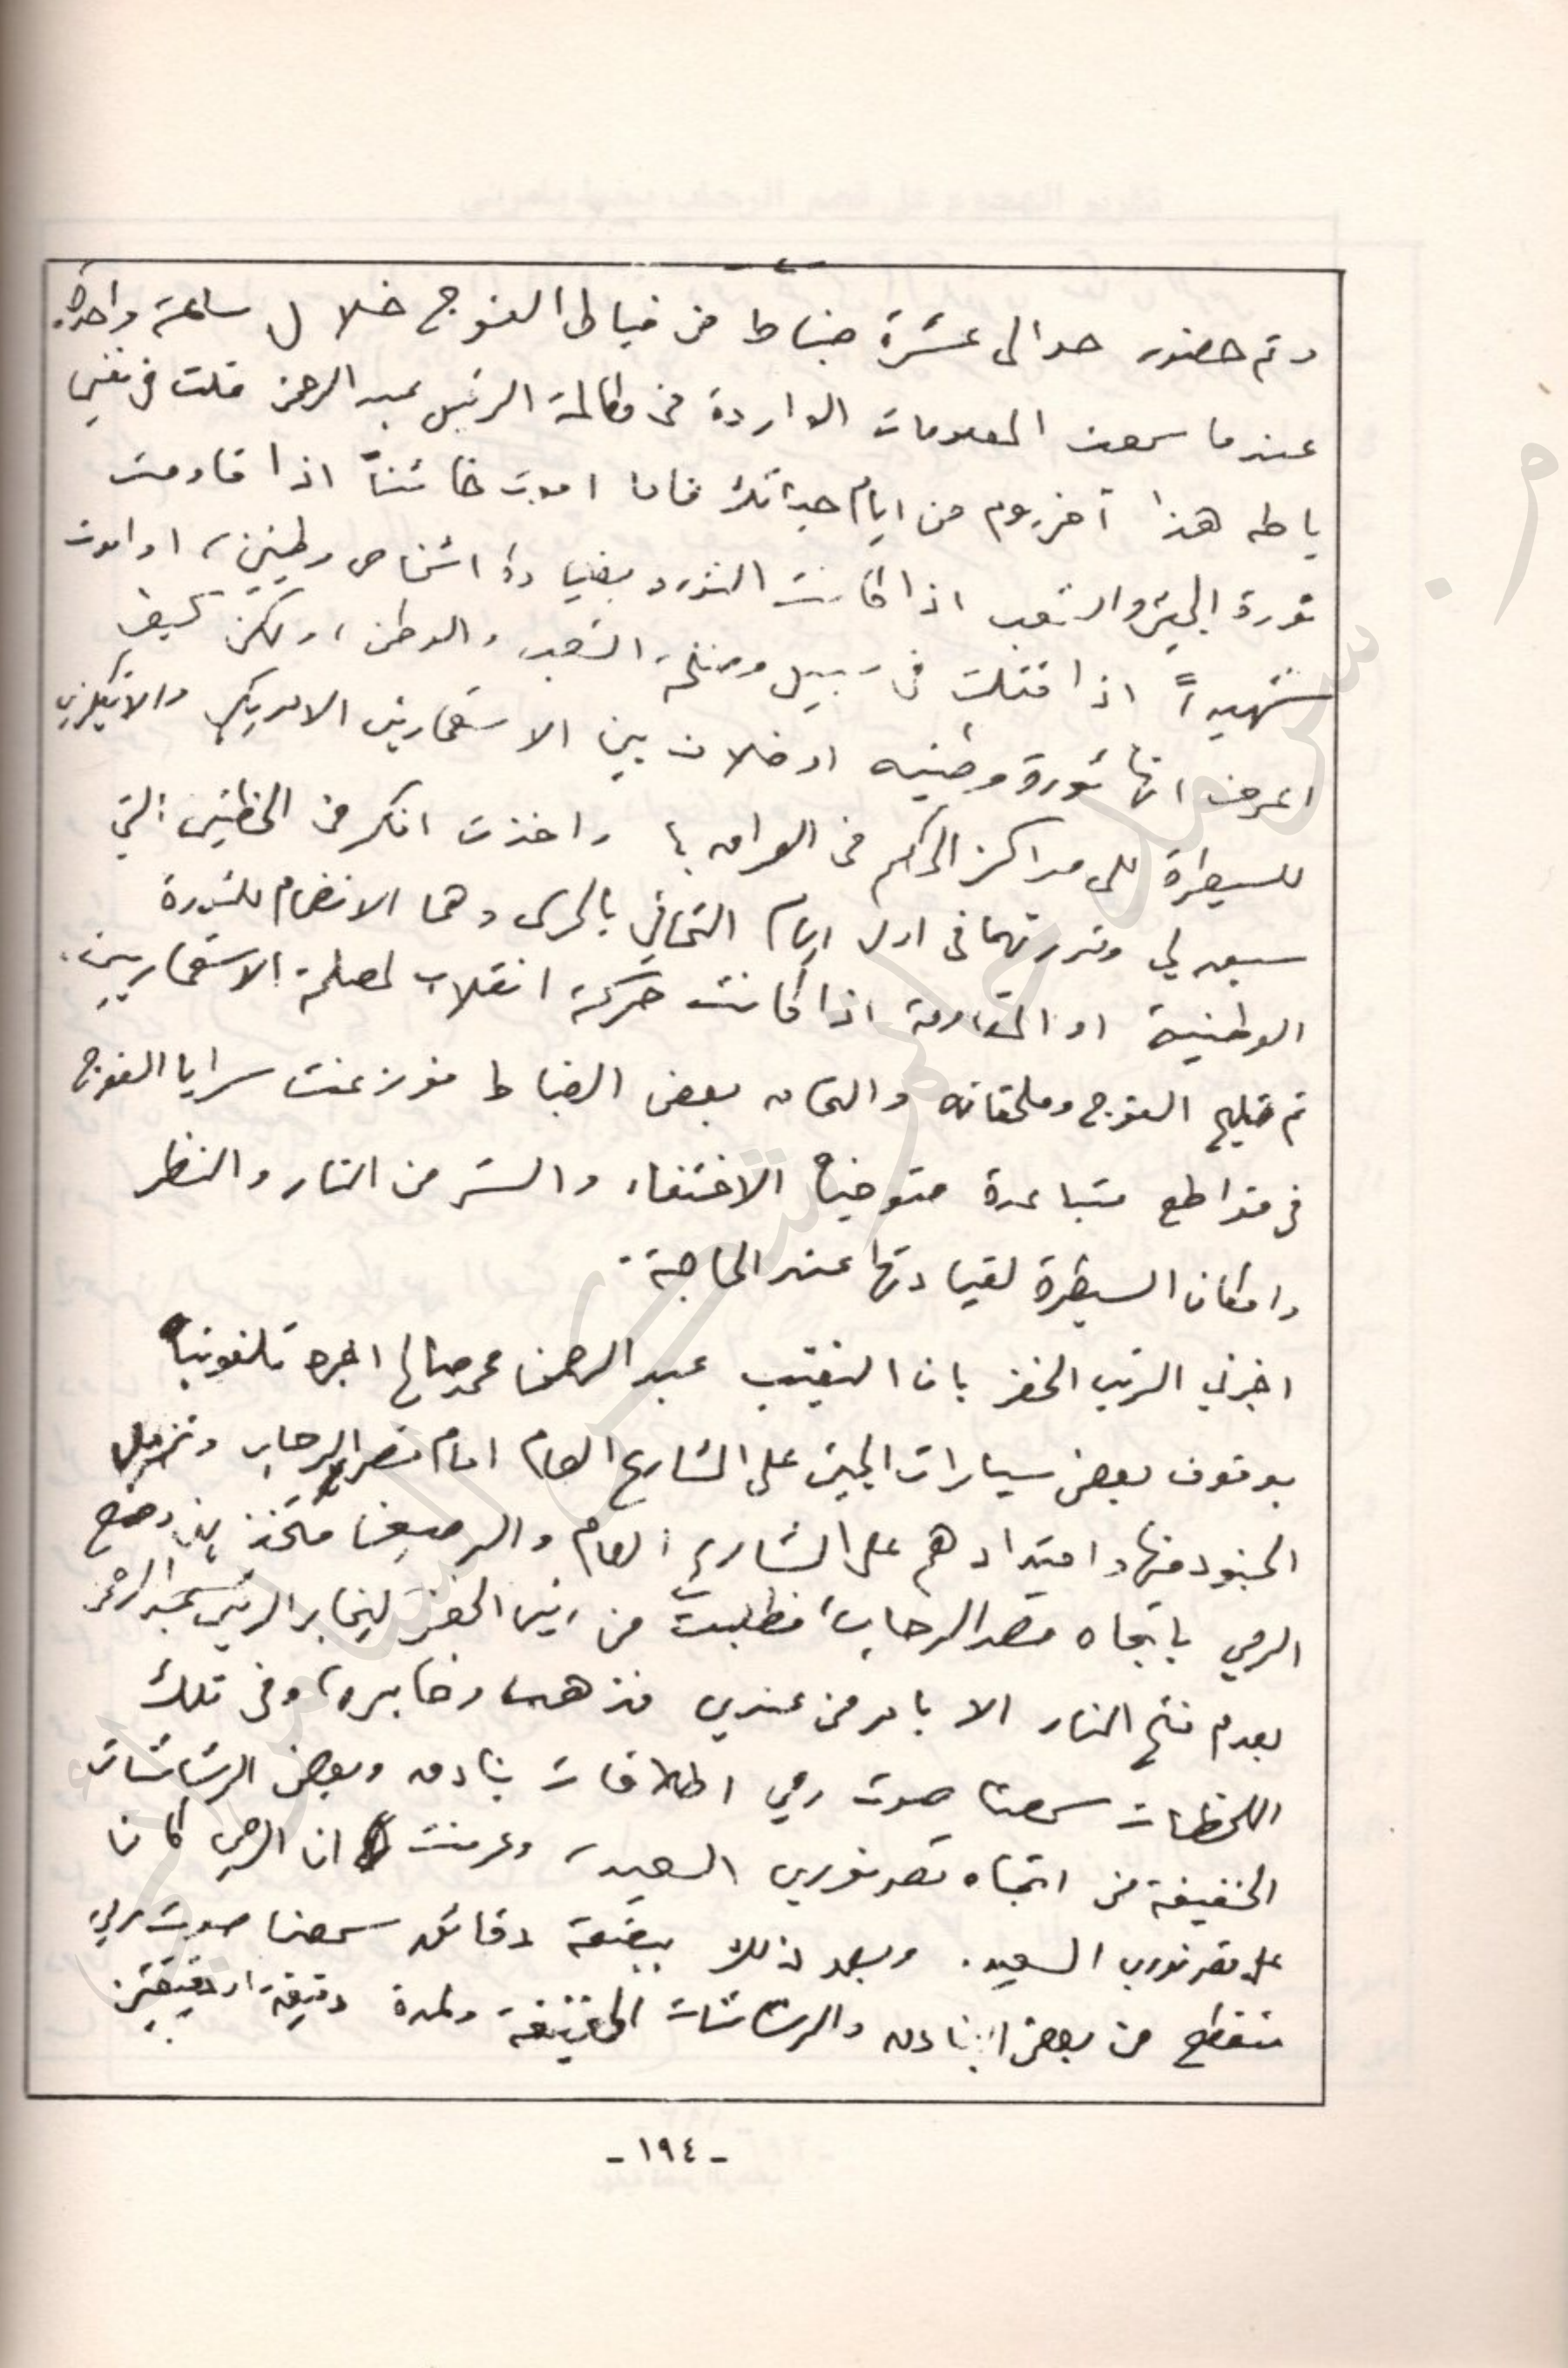 - ٤ -
وتم حضور حوالي عشرة ضباط من ضباط الفوج خلال ساعة واحدة.
عندما سمعت المعلومات الواردة من مكالمة الرئيس عبد الرحمن قلت في نفسي
يا طه هذا آخر يوم من ايام حياتك فاما اموت خائناً اذا قاومت
ثورة الجيش والشعب اذا كانت الثورة بقيادة اشخاص وطنيين، او اموت
شهيداً اذا قتلت في سبيل ومصلحة الشعب والوطن، ولكن كيف
اعرف انها ثورة وطنيه او خلاف بين الاستعمارين الامريكي والانكليزي
للسيطرة على مراكز الحكم في العراق؟ واخذت افكر في الخطتين التي
سبق لي وقررتهما في اول ايام التحاقي بالحرس وهما الانضمام للثورة
الوطنية او المقاومة اذا كانت حركة انقلاب لمصلحة الاستعماريين.
تم تسليح الفوج وملحقاته والتحاق بعض الضباط فوزعت سرايا الفوج
في مواضع متباعدة متوخياً الاختفاء والستر من النار والنظر
وامكان السيطرة لقيادتها عند الحاجة.
اخبرني الرئيس الخفر بان النقيب عبد الرحمن محمد صالح اخبره تلفونياً
بوقوف بعض سيارات الجيش على الشارع العام امام قصر الرحاب وتنزيل
الجنود منها وامتدادهم على الشارع العام والرصيف متخذين وضع
الرمي باتجاه قصر الرحاب، فطلبت من رئيس الخفر ليخابر الرئيس عبد الرحمن
بعدم فتح النار الا بامر من عندي فذهب وخابره، وفي تلك
اللحظات سمعنا صوت رمي اطلاقات بنادق وبعض الرشاشات
الخفيفة من اتجاه قصر نوري السعيد، وعرفت ان الرمي كان
على قصر نوري السعيد. وبعد ذلك ببضعة دقائق سمعنا صوت رمي
متقطع من بعض البنادق والرشاشات الخفيفة ولمدة دقيقة او دقيقتين
- ١٩٤ -